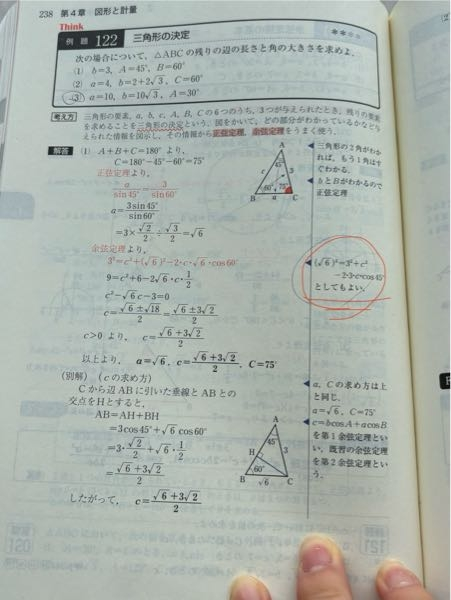 238 第4章 図形と計量
Think
例題 122 三角形の決定 ****
次の場合について，△ABCの残りの辺の長さと角の大きさを求めよ．
(1) b=3, A=45°, B=60°
(2) a=4, b=2+2√3, C=60°
(3) a=10, b=10√3, A=30°
考え方 三角形の要素，a, b, c, A, B, C の6つのうち，3つが与えられたとき，残りの要素
を求めることを三角形の決定という．図をかいて，どの部分がわかっているかなど与
えられた情報を図示し，その情報から正弦定理，余弦定理をうまく使う．
解答 (1) A+B+C=180° より，
C=180°−45°−60°=75°
正弦定理より，
a/sin45°=3/sin60°
a=3sin45°/sin60°
=3×√2/2÷√3/2=√6
余弦定理より，
3²=c²+(√6)²−2·c·√6·cos60°
9=c²+6−2√6·c·1/2
c²−√6c−3=0
c=(√6±√18)/2=(√6±3√2)/2
c>0 より， c=(√6+3√2)/2
以上より， a=√6, c=(√6+3√2)/2, C=75°
(別解) (c の求め方)
C から辺 AB に引いた垂線と AB との
交点を H とすると，
AB=AH+BH
=3cos45°+√6cos60°
=3·√2/2+√6·1/2
=(√6+3√2)/2
したがって， c=(√6+3√2)/2
A
45°
c
3
60°
75°
B
a
C
三角形の2角がわか
れば，もう1角はす
ぐわかる．
bとBがわかるので
正弦定理
(√6)²=3²+c²
−2·3·c·cos45°
としてもよい．
A
45°
3
H
60°
B
√6
C
a, C の求め方は上
と同じ．
a=√6, C=75°
c=bcosA+acosB
を第1余弦定理とい
い，既習の余弦定理
を第2余弦定理とい
う．